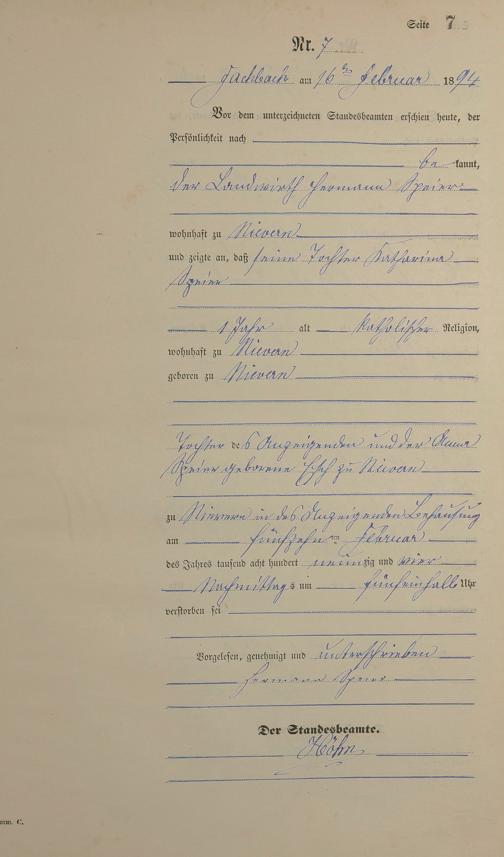 Seite 7
Nr. 7
Fachbach am 16ten Februar 1894
Vor dem unterzeichneten Standesbeamten erschien heute, der
Persönlichkeit nach
be kannt,
der Landwirth Hermann Speier
wohnhaft zu Nievern
und zeigte an, daß seine Tochter Katharina
Speier
1 Jahr alt katholischer Religion,
wohnhaft zu Nievern
geboren zu Nievern
Tochter des Anzeigenden und der Anna
Speier geborene zu Nievern
zu Nievern in des Anzeigenden Behausung
am fünfzehnten Februar
des Jahres tausend acht hundert neunzig und vier
Nachmittags um fünfeinhalb Uhr
verstorben sei
Vorgelesen, genehmigt und unterschrieben
Hermann Speier
Der Standesbeamte.
Höhn
C.